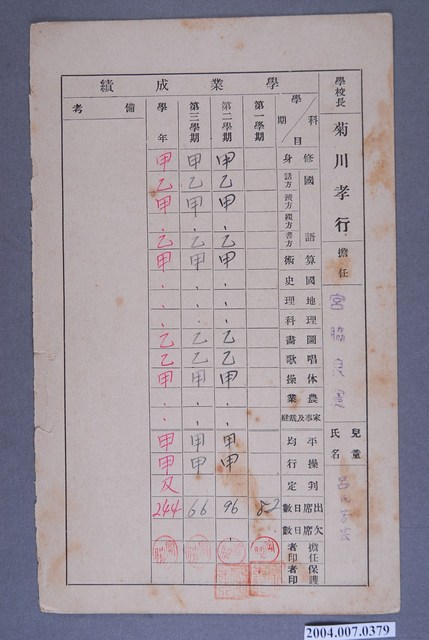 學校長 菊川孝行 擔任 宮脇
兒童氏名
學業成績
科目 學期 第一學期 第二學期 第三學期 學年 備考
修身 甲 甲 甲
國語
話方 乙 乙 乙
讀方 甲 甲 甲
綴方 . . .
書方 乙 乙 乙
算術 甲 甲 甲
國史 . . .
地理 . . .
理科 . . .
圖畫 乙 乙 乙
唱歌 乙 乙 乙
体操 甲 甲 甲
農業 . . .
家事及裁縫 . . .
平均 甲 甲 甲
操行 甲 甲 甲
判定 及
出席日數 52 96 66 244
欠席日數
擔任者印
保護者印
2004.007.0379